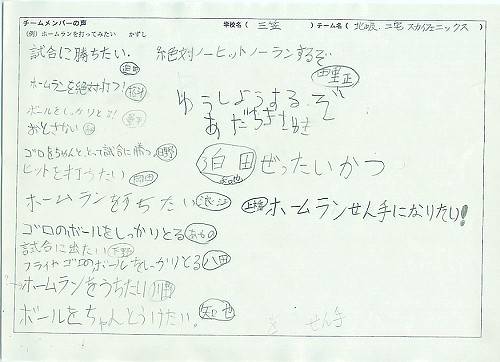 チームメンバーの声 学校名（三笠）チーム名（北岐、二宅 スカイフェニックス）
（例）ホームランを打ってみたい かずし
試合に勝ちたい。
絶対ノーヒットノーランするぞ
ホームランを絶対打つ！
ゆうしょうする.ぞ
ボールをしっかりとる！
おとさない
ゴロをちゃんととって試合に勝つ
泊田 ぜったいかつ
ヒットを打うたい
ホームランをうちたい
ホームランせん手になりたい！
ゴロのボールをしっかりとる
試合に出たい 下野
フライやゴロのボールをしっかりとる 八田
ホームランをうちたい
ボールをちゃんとうけたい。 知也
せん手